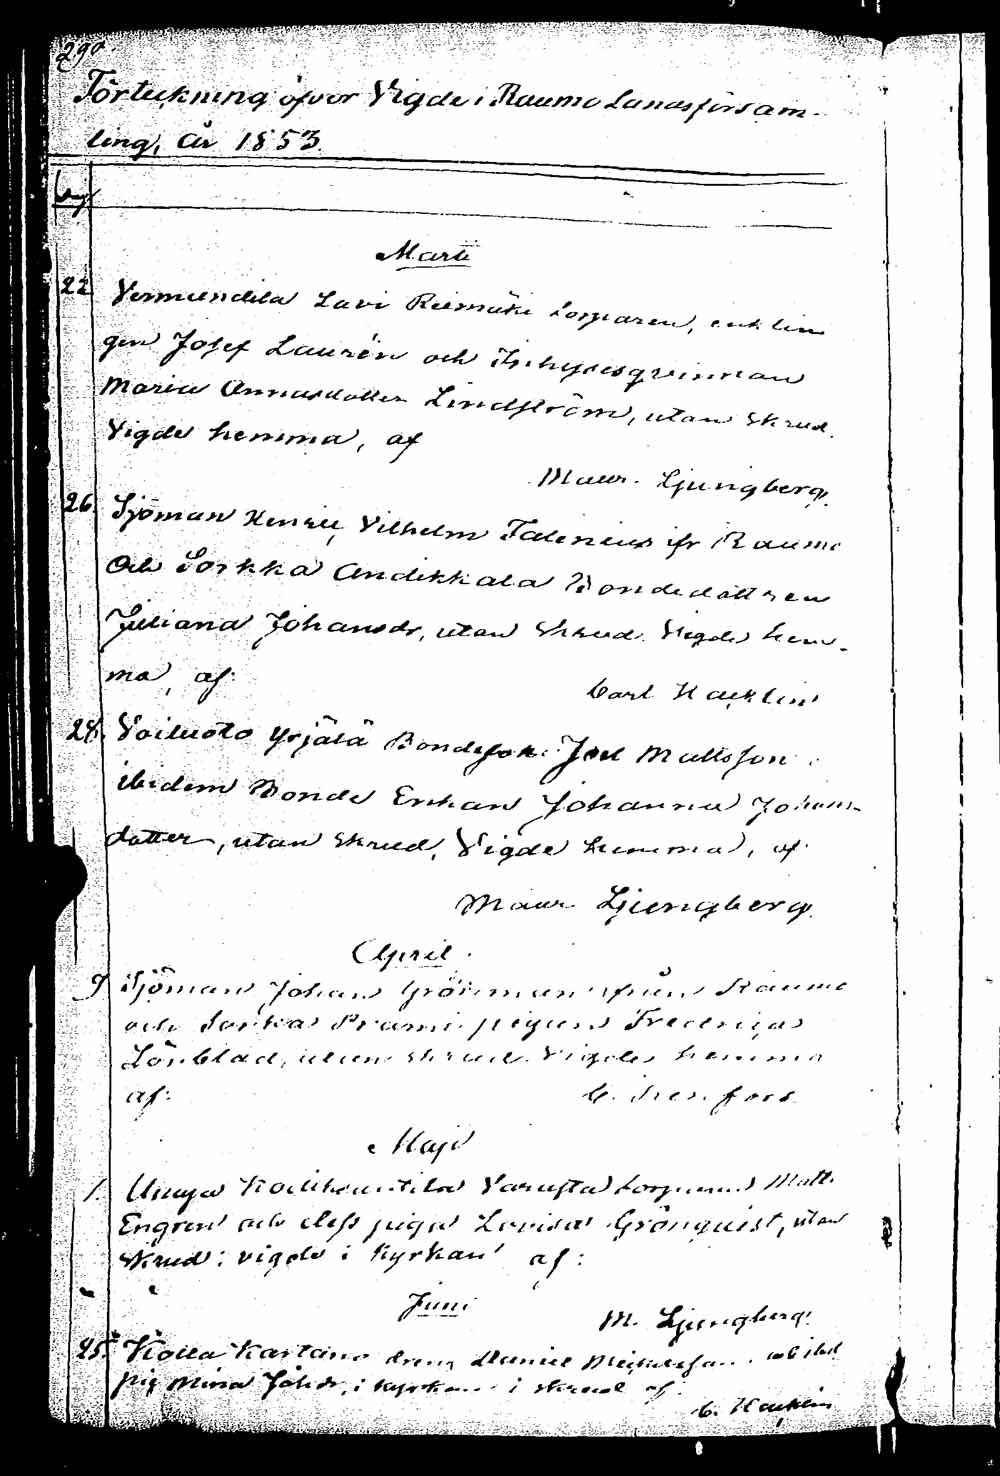 290.
Förteckning öfver Vigde i Raumo Landsförsam-
ling, År 1853.
Dag
Marti
22 Vermundila Lavi Riemäki torparen, enklin
gen Josef Laurén och Inhysesqvinnan
Maria Annasdotter Lindström, utan skrud.
Vigde hemma, af
Maur. Ljungberg.
26. Sjöman Henric Vilhelm Talenius ifr Raumo
och Sorkka Andikkala Bondedottren
Juliana Johansdr, utan skrud. Vigde hem-
ma, af:
Carl Hacklin
28. Voiluoto Yrjälä Bondeson Joel Mattsson
ibidem Bonde Enkan Johanna Johans-
dotter, utan skrud, Vigde hemma, af
Maur Ljungberg.
April.
9 Sjöman Johan Grönman från Raumo
och Sorkka pigan Fredrica
Lönblad, utan skrud. Vigde hemma
af: C.
Maji
1. Unaja Varusta torparen Matts
Engren och dess piga Lovisa Grönquist, utan
skrud; vigde i kyrkan af:
M. Ljungberg.
Juni
25. Kolla Kartano dreng Daniel och
pig Mina Johdr, i kyrkan i skrud af
C. Hacklin